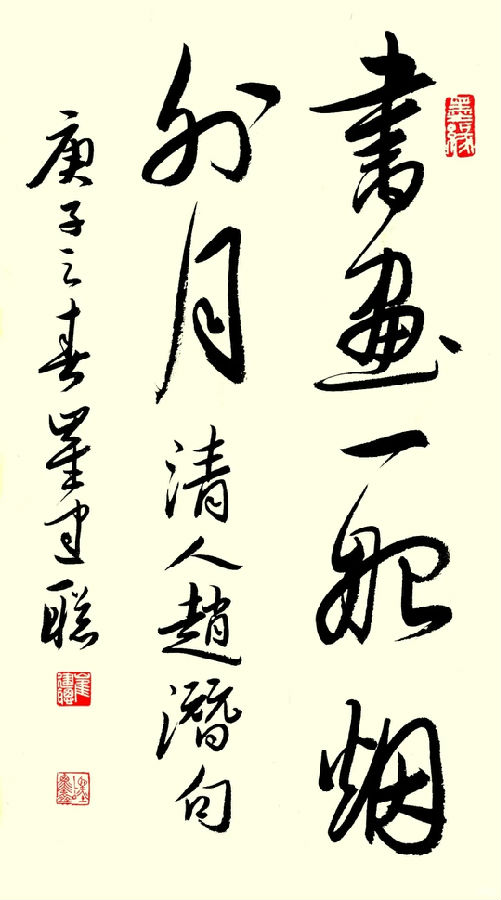 墨緣
書畫一船烟
外月 清人趙潛句
庚子之春崔建